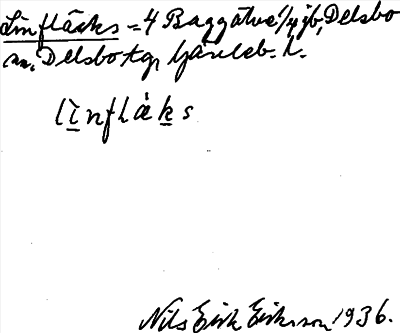 Linfläcks = 4 Baggåtve 1/4 jb, Delsbo
sn, Delsbo tg, Gävleb. l.
lìnflàks
Nils Erik Eriksson 1936.